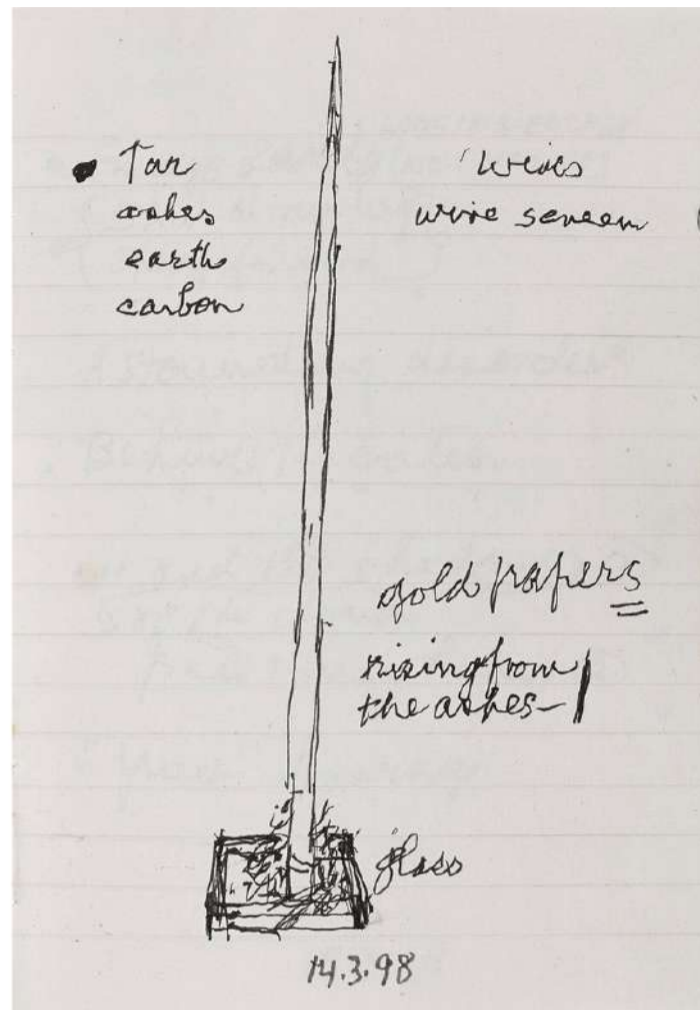 Tar
ashes
earth
carbon
wires
wire screen
gold papers
rising from
the ashes—
glass
14.3.98